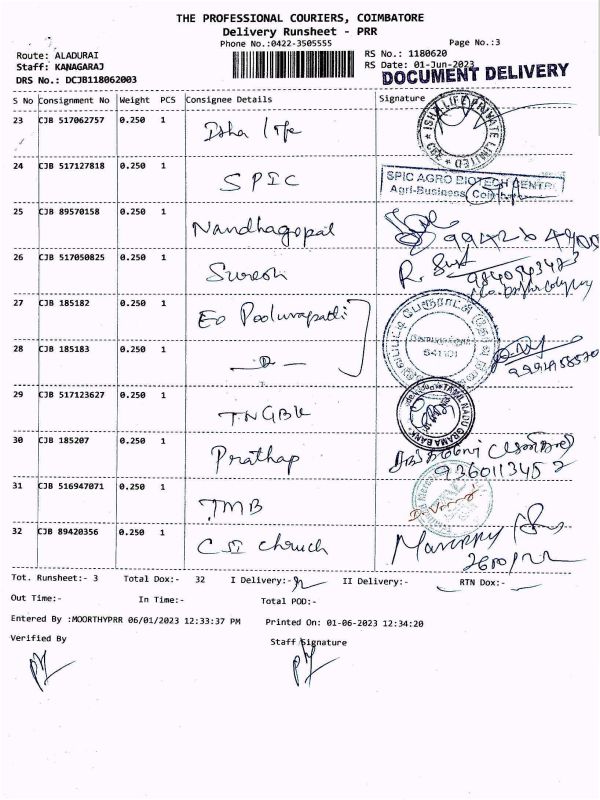 THE PROFESSIONAL COURIERS, COIMBATORE
Delivery Runsheet - PRR
Phone No.:0422-3505555 Page No.:3
Route: ALADURAI RS No.: 1180620
Staff: KANAGARAJ RS Date: 01-Jun-2023
DRS No.: DCJB118062003 DOCUMENT DELIVERY
S No Consignment No Weight PCS Consignee Details Signature
23 CJB 517062757 0.250 1 Isha life
ISHA LIFE PRIVATE LIMITED
24 CJB 517127818 0.250 1 SPIC
SPIC AGRO BIOTECH CENTRE
Agri-Business, Coimbatore
25 CJB 89570158 0.250 1 Nandhagopal
26 CJB 517050825 0.250 1 Suresh
27 CJB 185182 0.250 1 EO Pooluvapatti
28 CJB 185183 0.250 1 -D-
641101
29 CJB 517123627 0.250 1 TNGBK
TAMIL NADU GRAMA BANK
30 CJB 185207 0.250 1 Prathap
9360113452
31 CJB 516947071 0.250 1 TMB
32 CJB 89420356 0.250 1 CSI chruch
Tot. Runsheet:- 3 Total Dox:- 32 I Delivery:- II Delivery:- RTN Dox:-
Out Time:- In Time:- Total POD:-
Entered By :MOORTHYPRR 06/01/2023 12:33:37 PM Printed On: 01-06-2023 12:34:20
Verified By Staff Signature